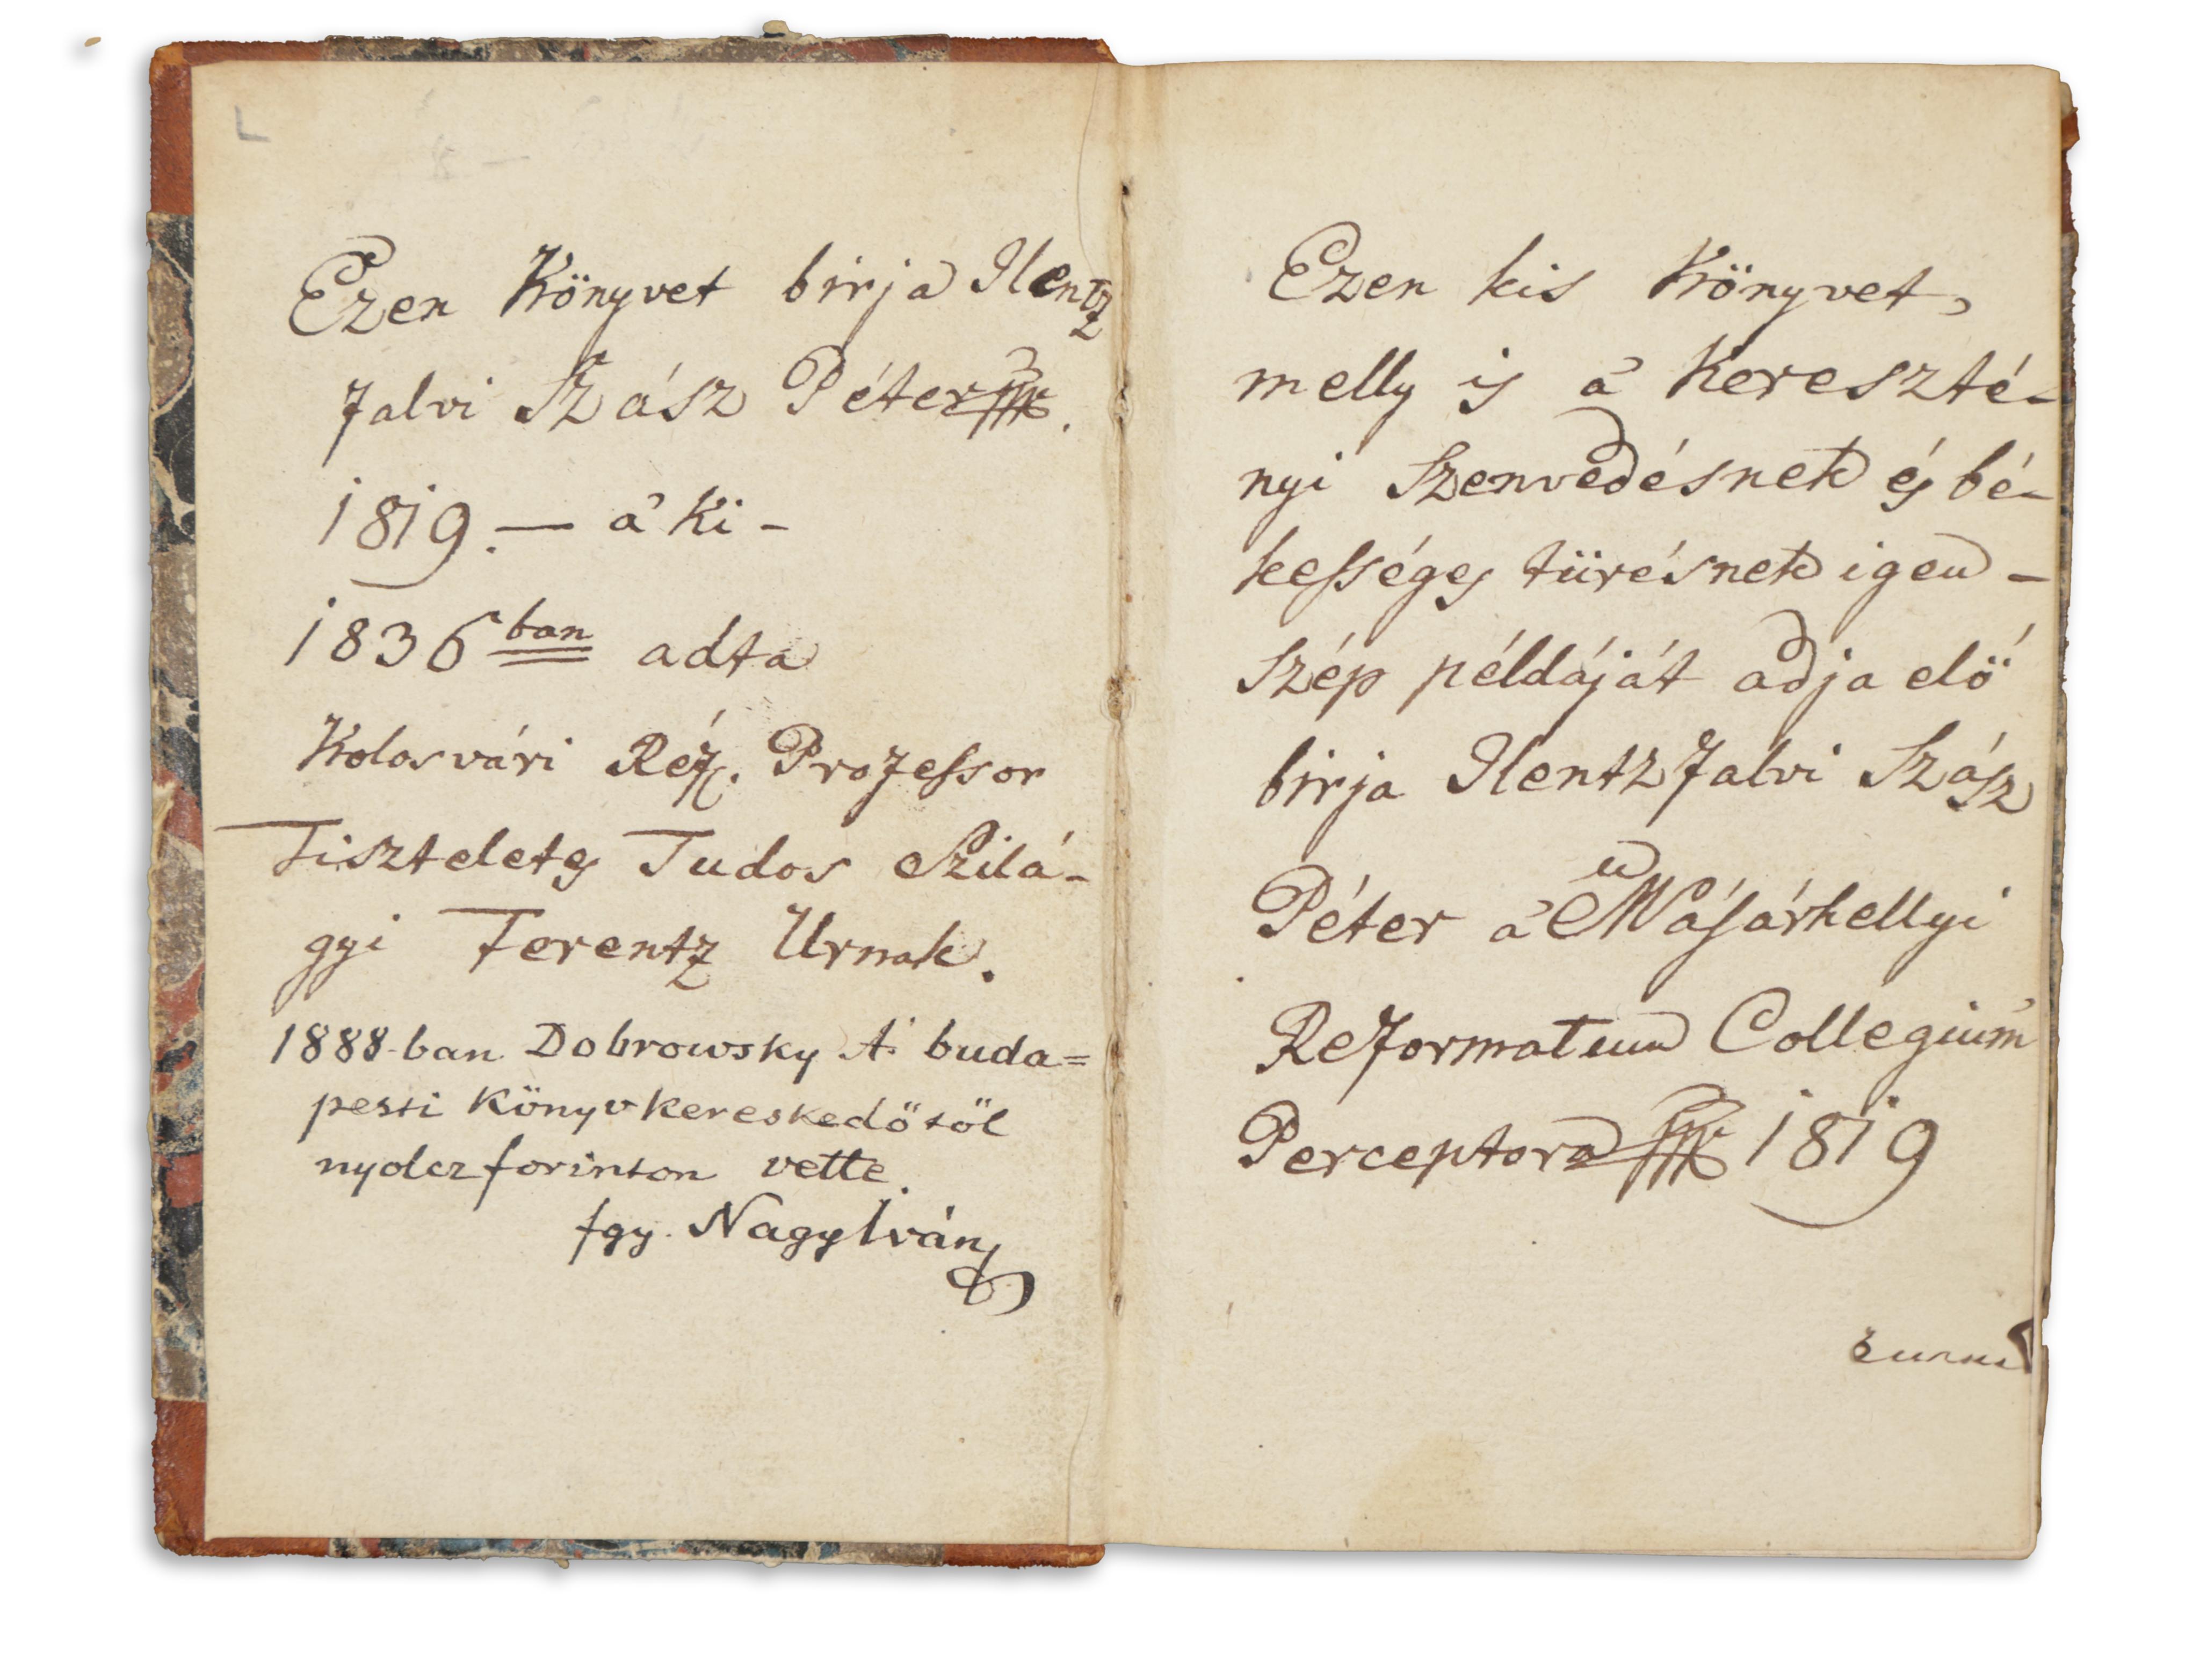 Ezen Könyvet birja Ilentz
falvi Szász Péter
1819. — a' Ki -
1836 ban adta
Kolosvári Réf. Professor
Tiszteletes Tudos Szilá-
gyi Ferentz Urnak.
1888-ban Dobrowsky A. buda=
pesti Könyvkereskedőtől
nyolcz forinton vette
fgy. Nagy Iván
Ezen kis Könyvet,
melly is a' Kereszté-
nyi Szenvedésnek és bé-
kességes türésnek igen -
szép példáját adja elő
birja Ilentzfalvi Szász
Péter a' M Vásárhellyi
Reformatum Collegium
Perceptora 1819